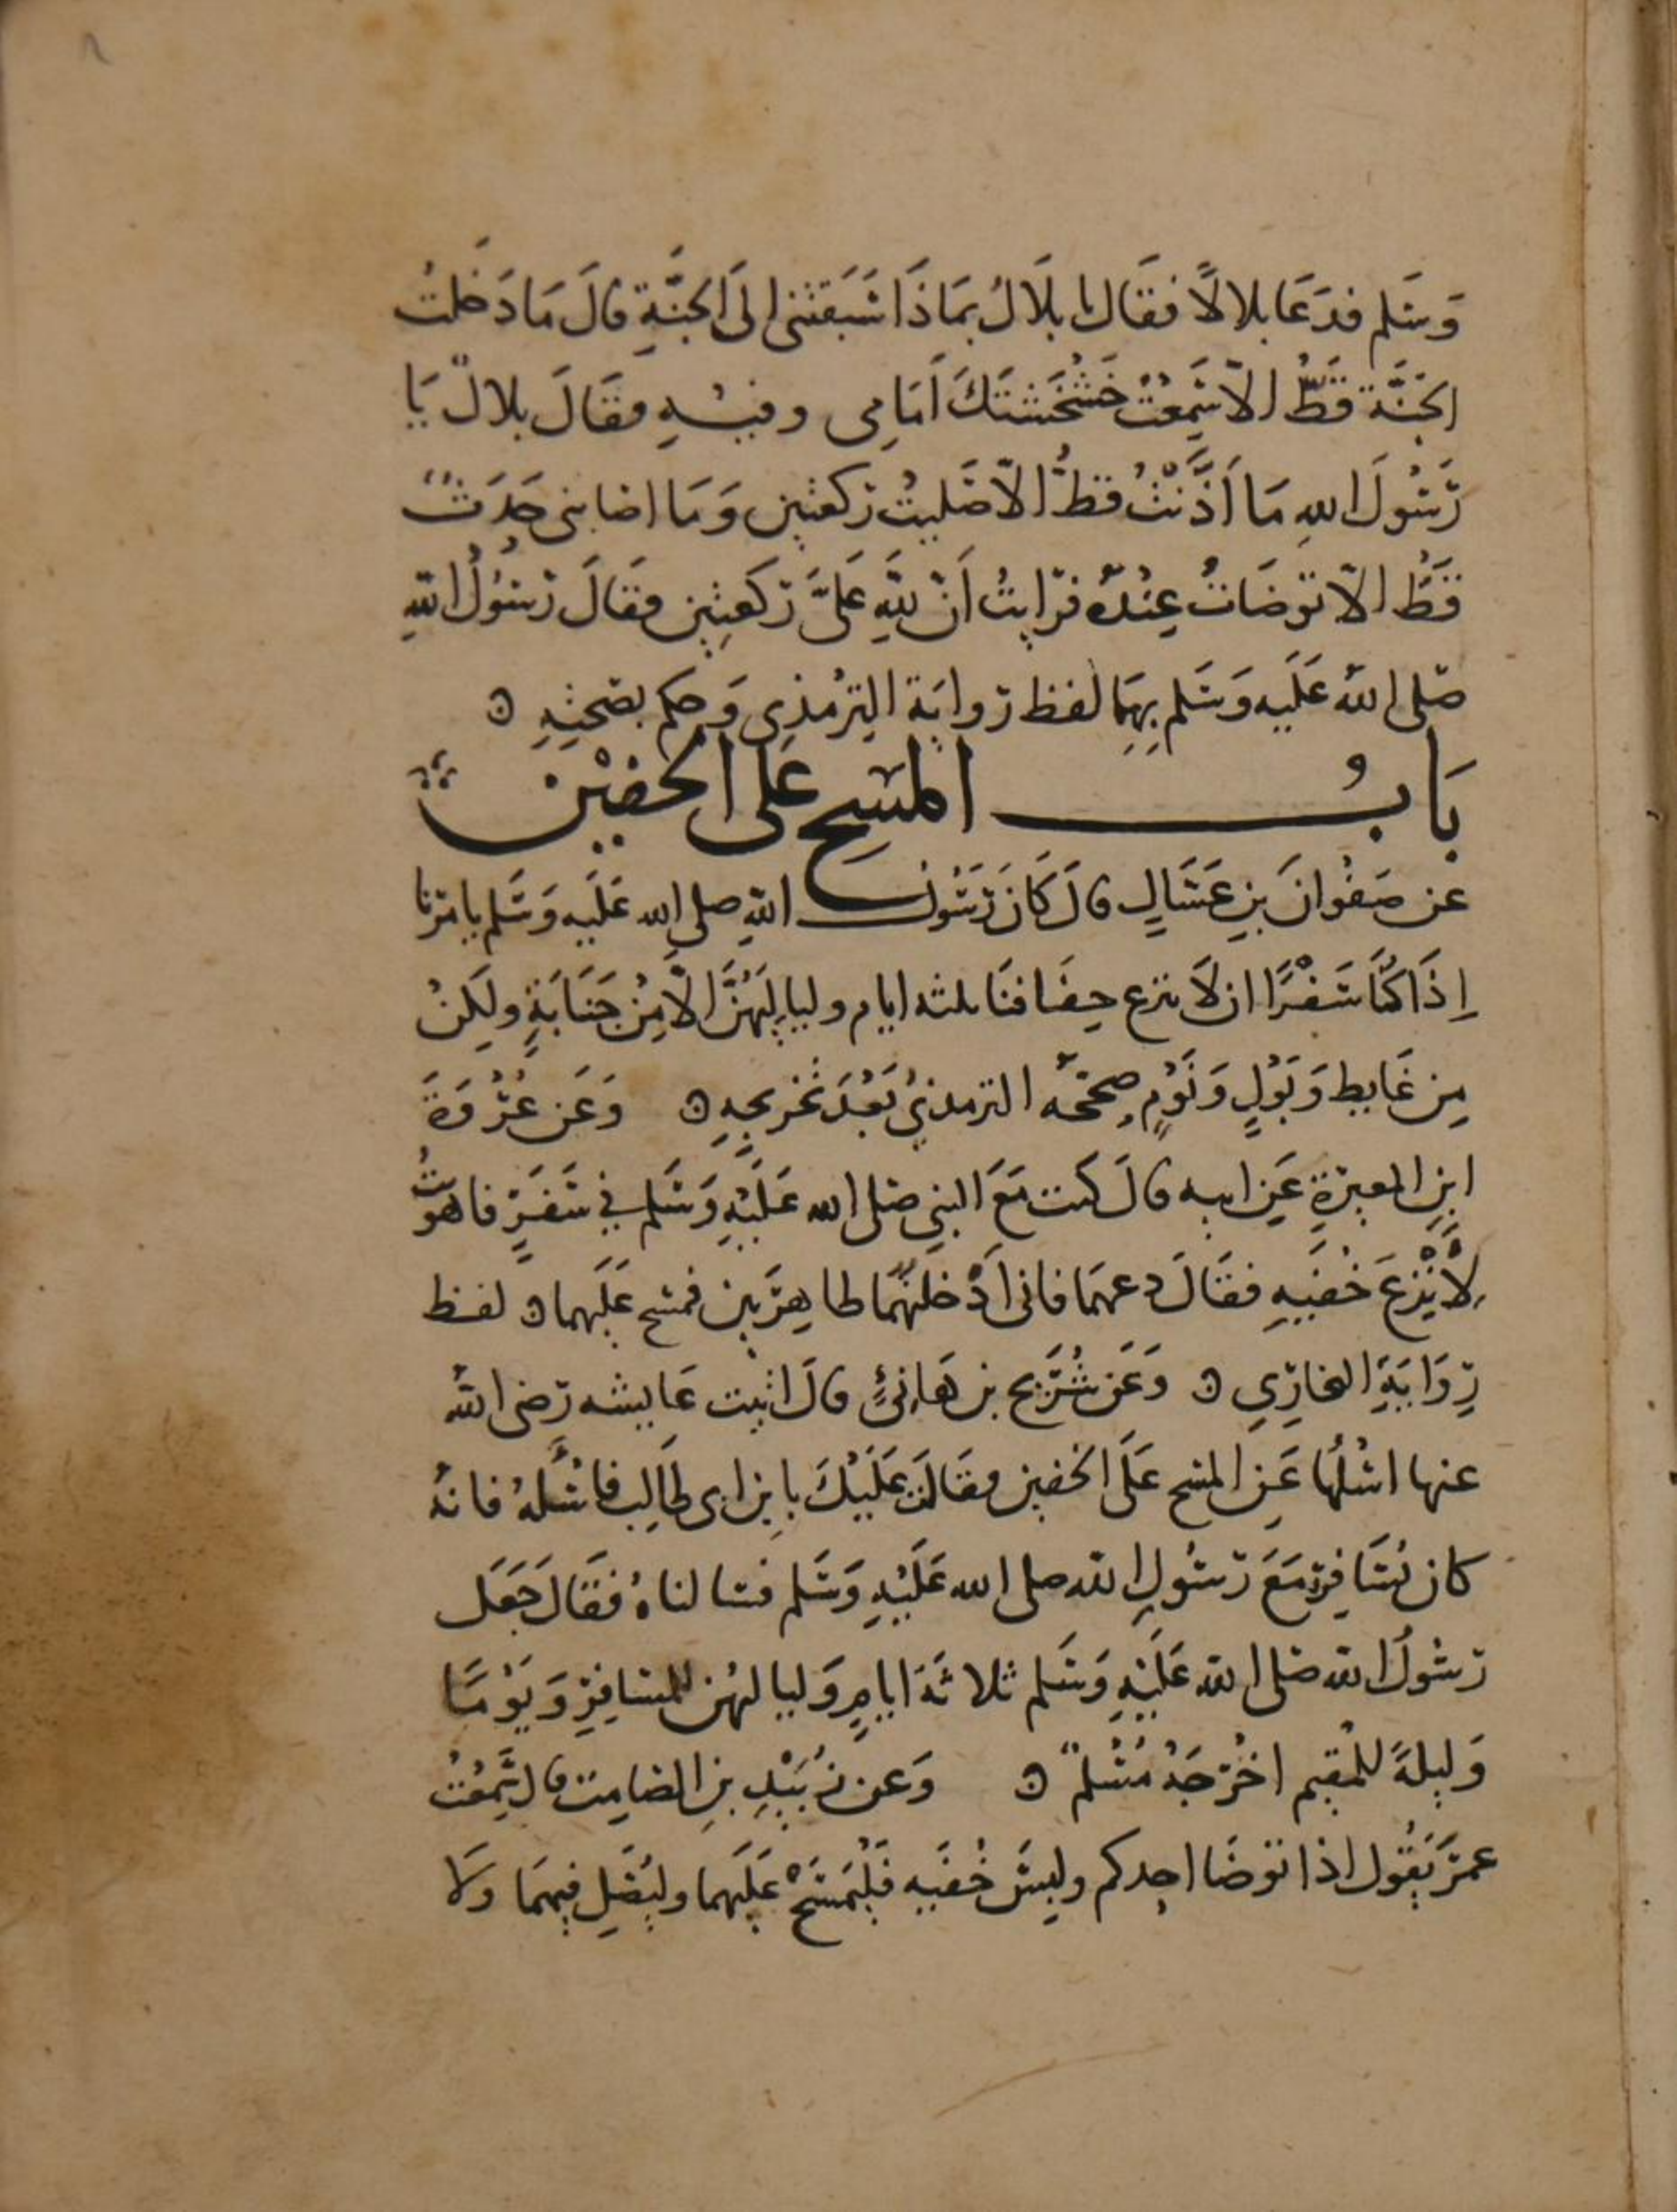 وَسَلم فدَعَا بلالاً فقَال يا بلَالُ بمَاذَا سَبَقتنى الى الجنَّةِ قالَ مَا دَخلتُ
الجَنَّة قَطُّ الاّ سَمِعْتُ خَشْخَشتَكَ اَمَامِى وفيـْـهِ فقَالَ بلالٌ يَا
رَسُولَ اللهِ مَا اَذَّنْتُ قطُّ الاّ صَليتُ ركعتين وَمَا اصَابنى حَدَثٌ
قَطُّ الاّ توضَاتُ عِنْدهُ فرَايتُ اَنّ للَّهِ عَلىَّ رَكعتين فقَالَ رَسُولُ اللّهِ
صَلى اللهُ عَلَيه وَسَلم بِهِمَا لفظ روايَة الترمُذِى وَحكم بصحتِهِ
بَابُ المَسْحِ عَلى الخفيْن
عن صَفوَانَ بنِ عَسَّالٍ قالَ كَانَ رَسُولُ اللّهِ صلى الله عَلَيه وَسَلم يامرنا
اِذَا كنَّا سَفْرًا ان لَا ننزع خِفَافنَا ثلثه ايام ولياليَهُنَّ الّا مِنْ جَنَابَةٍ ولَكِنْ
مِن غَايطٍ وَبَوْلٍ وَنَوْمٍ صححَه الترمذيُ بَعْدَ تخريجهِ وَعَن عُرْوَةَ
ابنِ المغيرَةِ عَن ابيه قالَ كنت مَعَ النبي صَلى الله عَلَيْهِ وَسَلم في سَفَرٍ فاهوَيتُ
لاَنْزِعَ خُفيَهِ فقَالَ دعهمَا فانى اَدْخلتُهُمَا طاهِرَتين فمسَح عَلَيهما لفظ
رِوَايَةِ البخارِي وَعَن شُرَيح بن هَانِئٍ قالَ اتيت عَايشه رَضى اللهُ
عنها اسْلُهَا عَن المسح عَلَى الخفين فقَالَت عَلَيْكَ بابن ابى طَالِبٍ فاسْئَلهُ فانهُ
كان يُسَافِرُ مَعَ رَسُولِ الله صلى الله عَلَيْهِ وَسَلم فسالناهُ فقَالَ جَعَل
رسُولُ الله صَلى الله عَلَيْهِ وَسَلم ثلاثَة ايامٍ وَلياليهُن للمسَافِرِ وَيَوْمًا
وَليلةً للمُقيم اخْرَجَهُ مُسْلمٌ وَعن زُبَيْدِ بنِ الصَامِت قال سَمِعْتُ
عمَرَ يَقُول اذا توضَا احدكم ولبسَ خُفيَه فَلْيَمْسَحْ عَلَيهما وليُصَلِ فيهمَا ولا